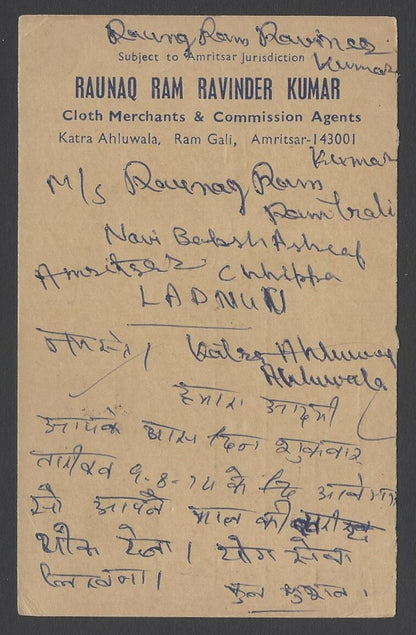 Raunq Ram Ravinder
Subject to Amritsar Jurisdiction
Kumar
RAUNAQ RAM RAVINDER KUMAR
Cloth Merchants & Commission Agents
Katra Ahluwala, Ram Gali, Amritsar-143001
Kumar
M/s Raunaq Ram
Ram Gali
Navi Baksh Ashraf
Amritsar Chhippa
LADNUN
नमस्ते।
Katra Ahluwa
Ahluwala
हमारा आदमी
आपके पास दिन शुक्रवार
तारीख 9-8-74 के दिन आयेगा
सो आपने माल की
थोक देना। योग सेवा
लिखना।